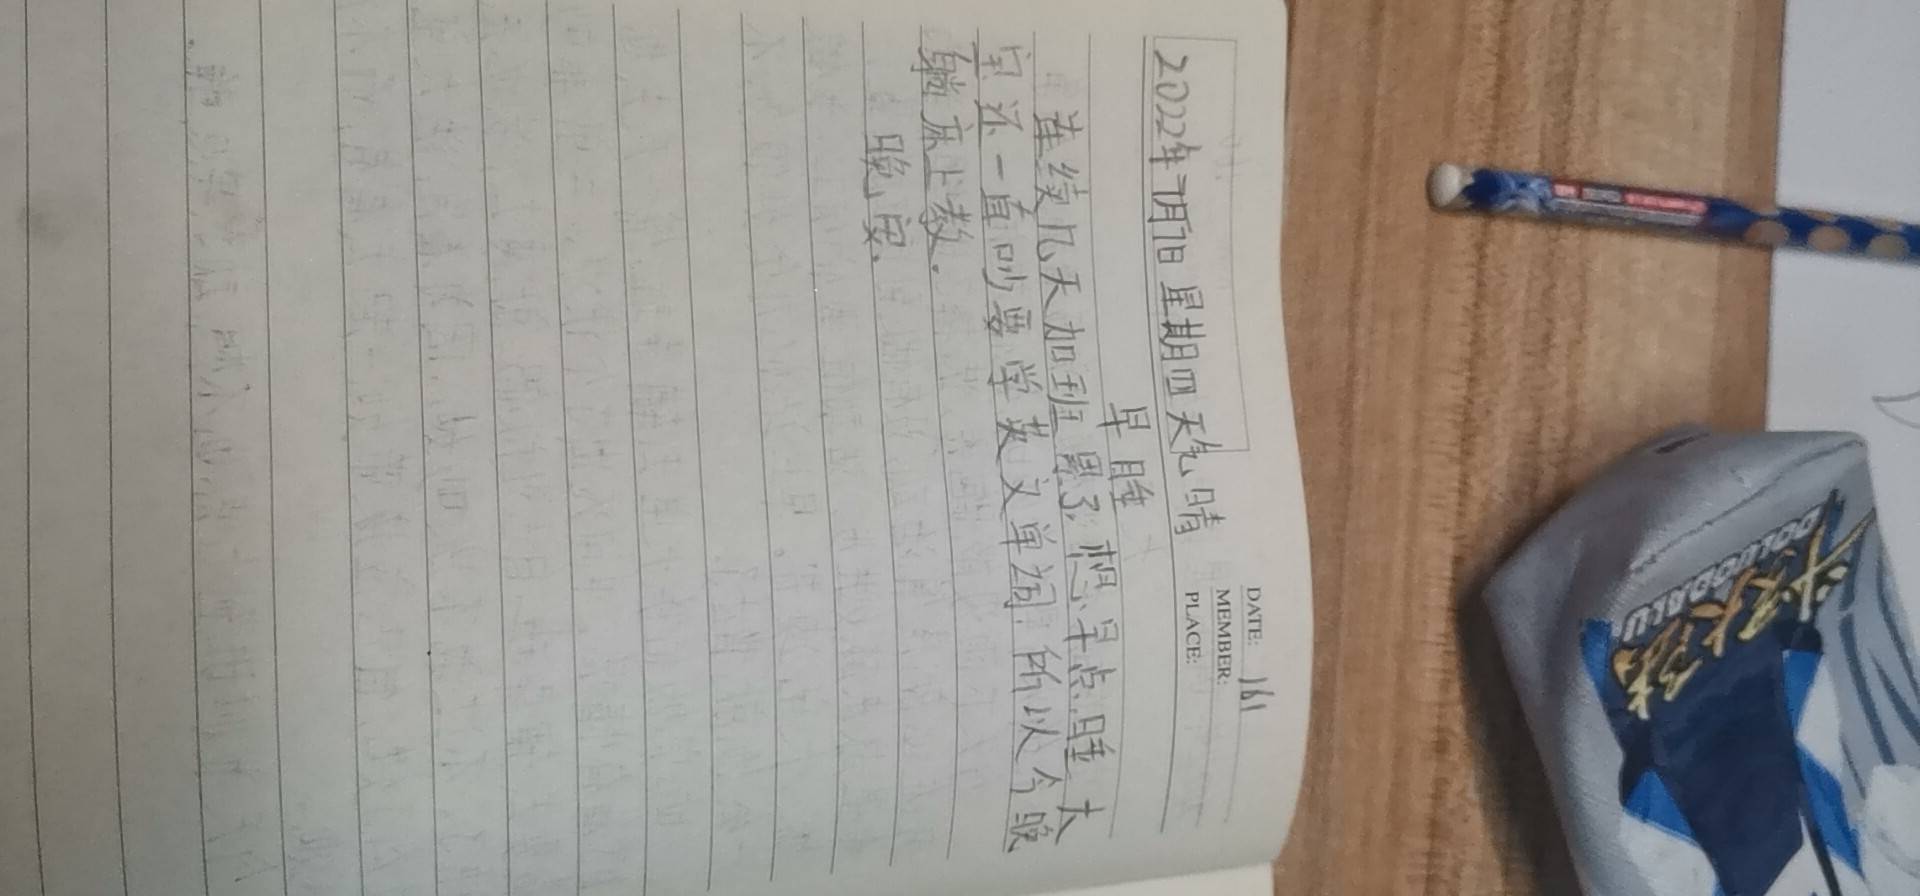 DATE: 161
MEMBER:
PLACE:
2022年7月7日 星期四 天气晴
早睡
连续几天加班累了,想早点睡,大
宝还一直吵要学英文单词,所以今晚
躺床上教.
晚安.
DOLUODALU
斗罗大陆